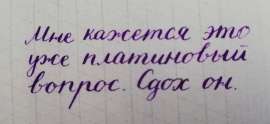 Мне кажется это
уже платиновый
вопрос. Сдох он.